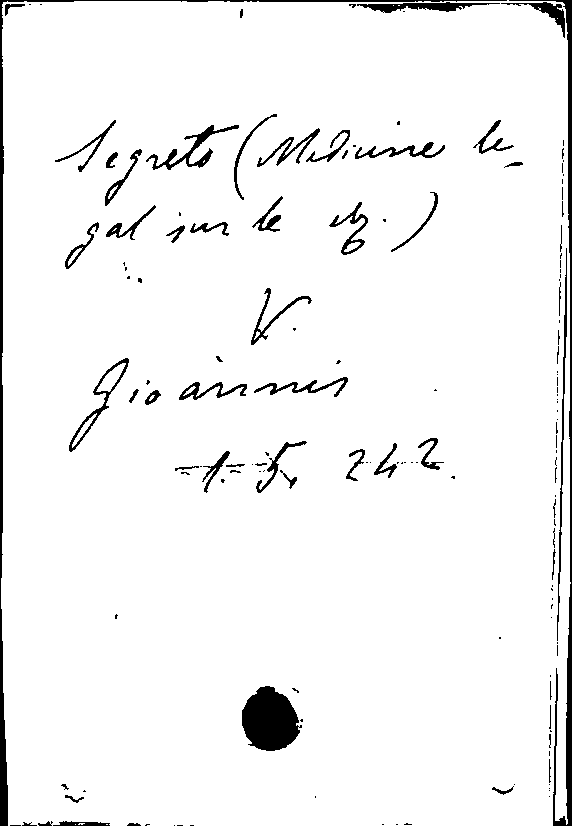 Segreto (Medicine le-
gal sur le
V.
Gioànnis
1. 5. 242.